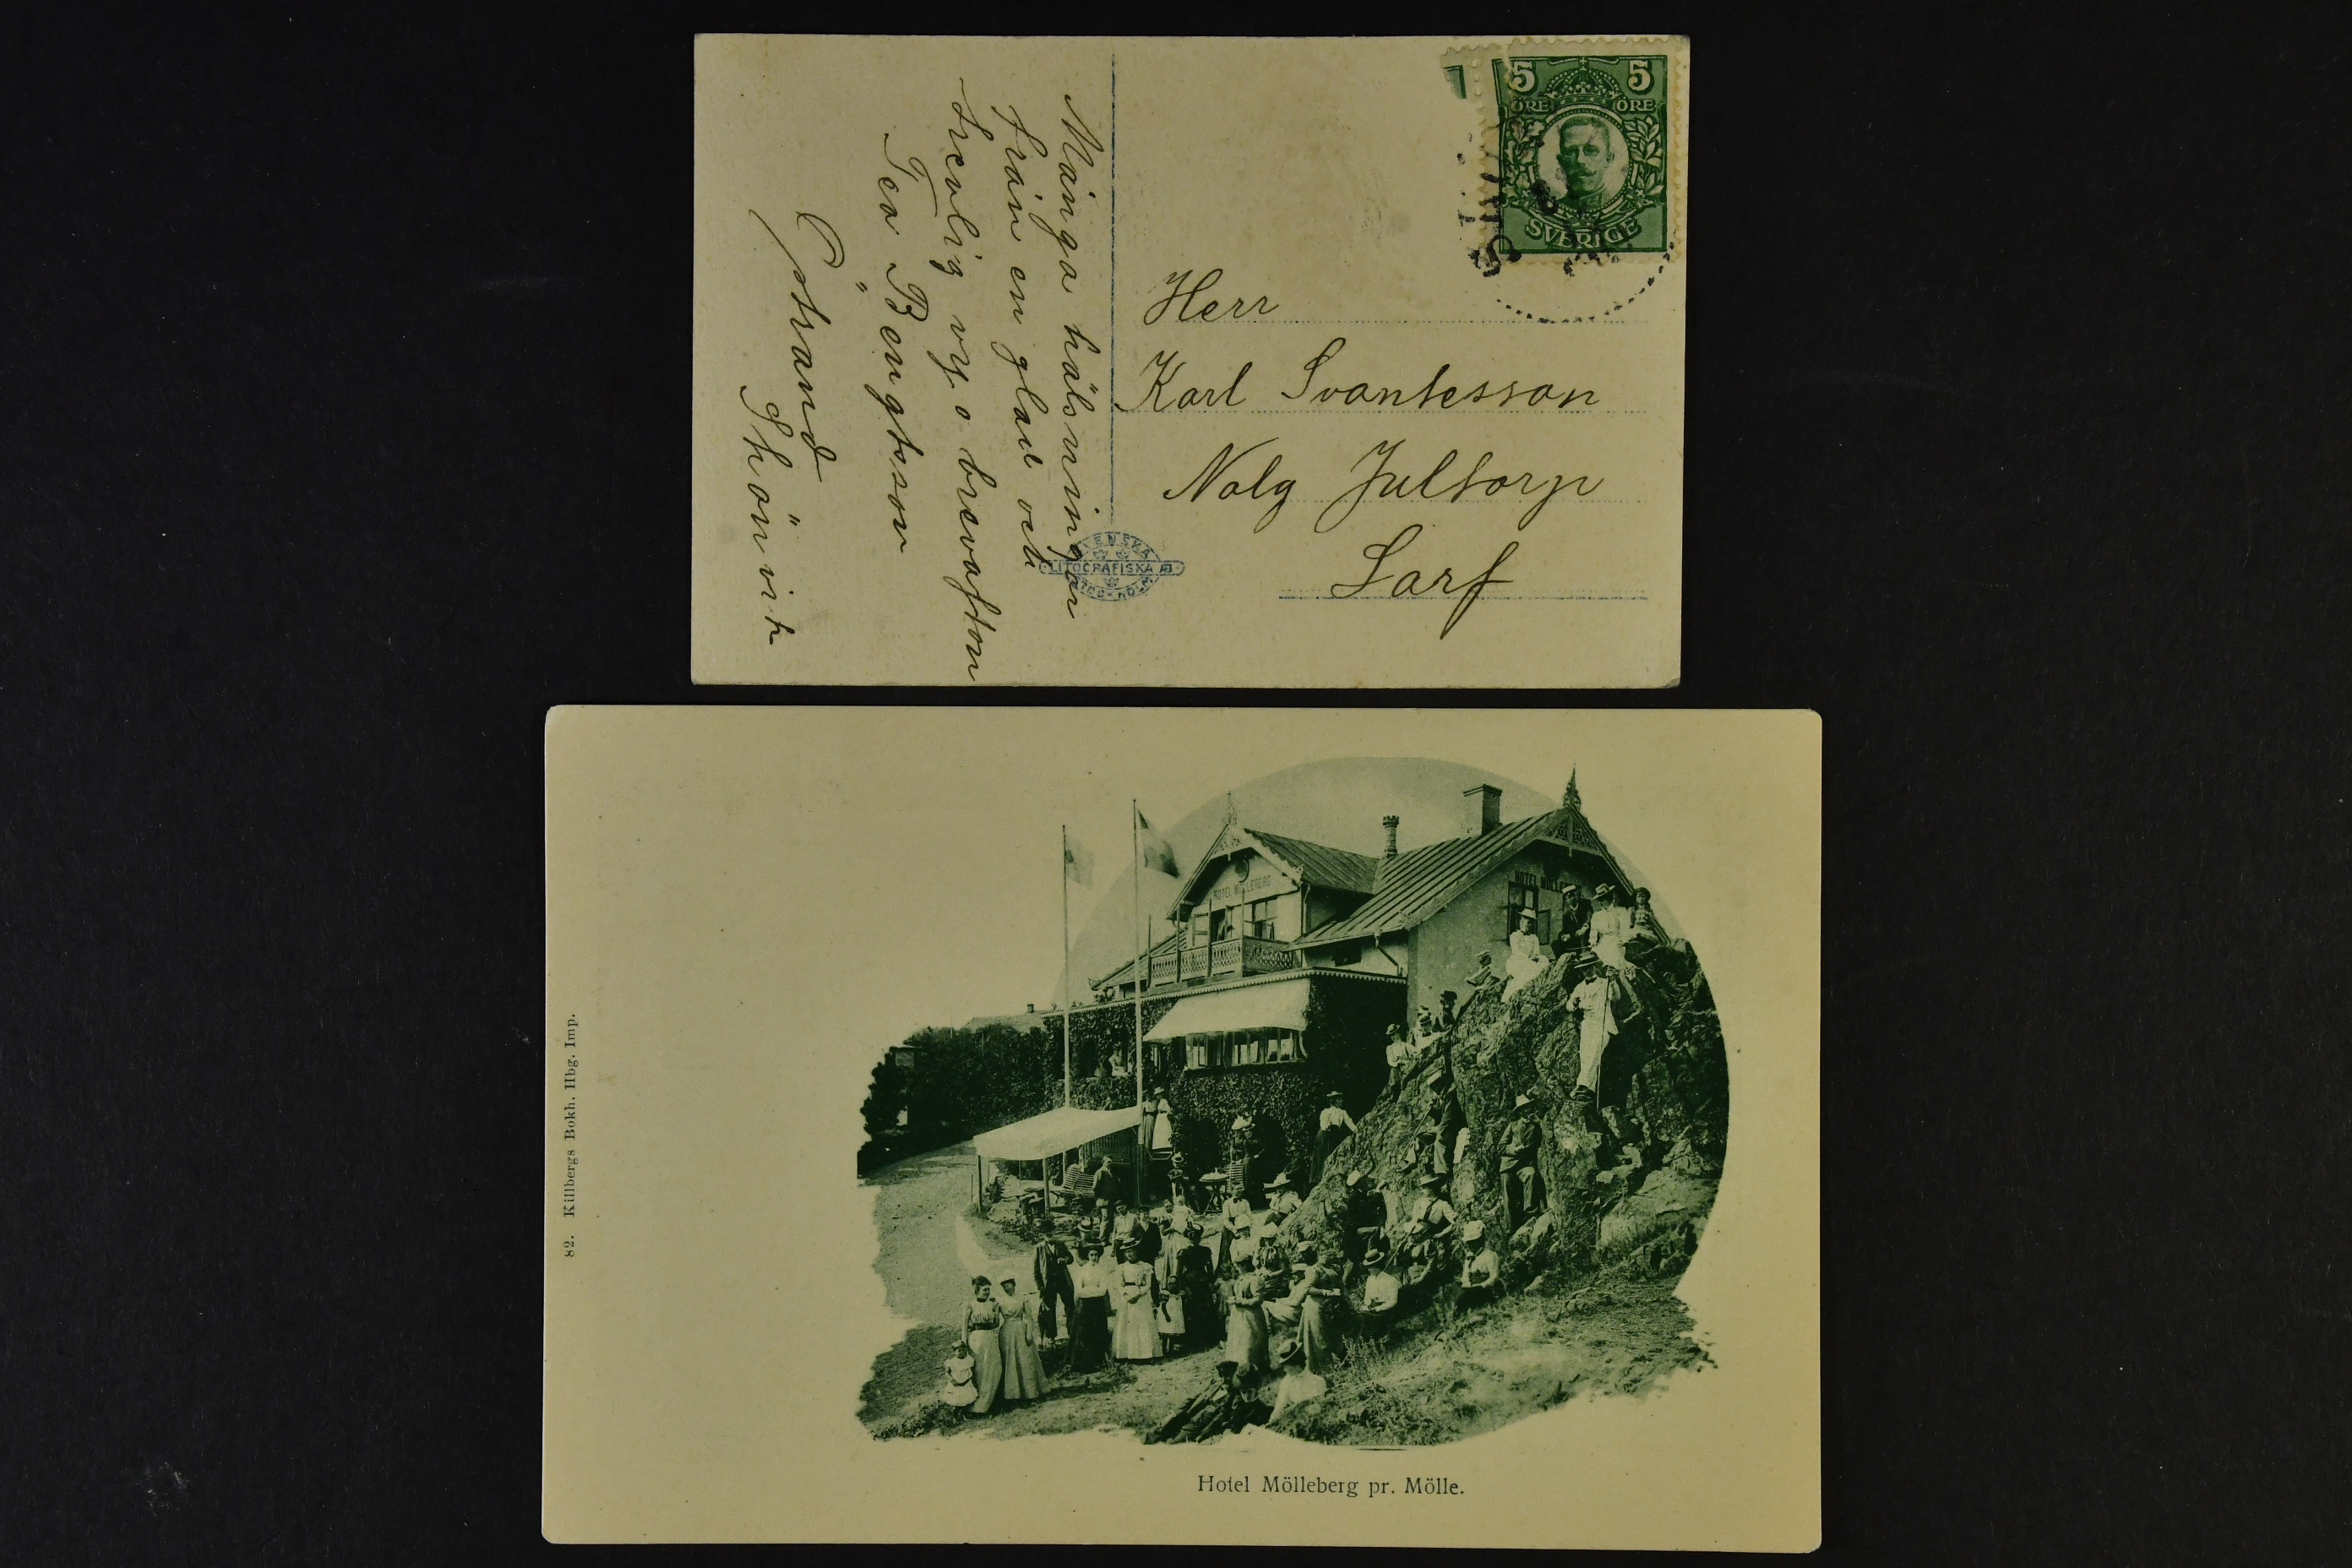 Många hälsningar
från en glad och
trevlig
Tea Bengtsson
Ostrand
Shönvik
5 5
ÖRE ÖRE
SVERIGE
Herr
Karl Svantesson
Nolg Jultorp
Larf
SVENSKA
LITOGRAFISKA AB
STOCKHOLM
HOTEL MÖLLEBERG
HOTEL MÖLLE
82. Killbergs Bokh. Hbg. Imp.
Hotel Mölleberg pr. Mölle.